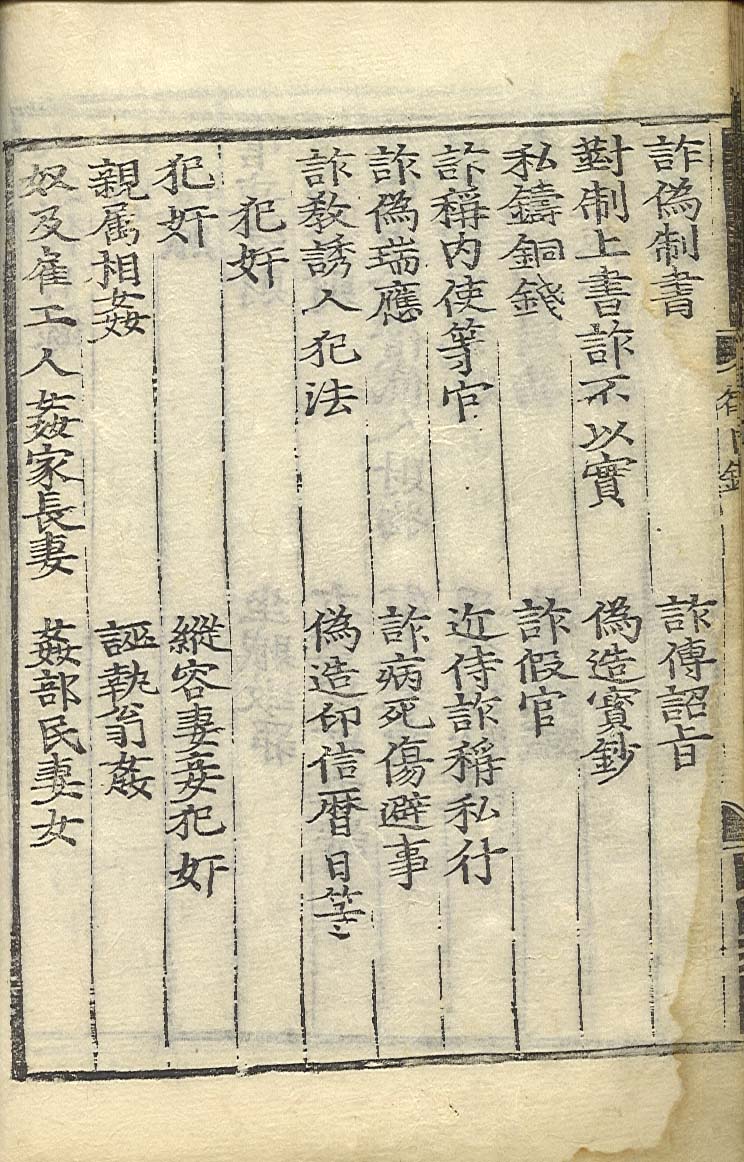 律目錄
詐偽制書　詐傳詔旨
對制上書詐不以實　偽造寳鈔
私鑄銅錢　詐假官
詐稱内使等官　近侍詐稱私行
詐偽瑞應　詐病死傷避事
詐教誘人犯法　偽造印信暦日等
犯奸
犯奸　縱容妻妾犯奸
親属相姦　誣執翁姦
奴及雇工人姦家長妻　姦部民妻女